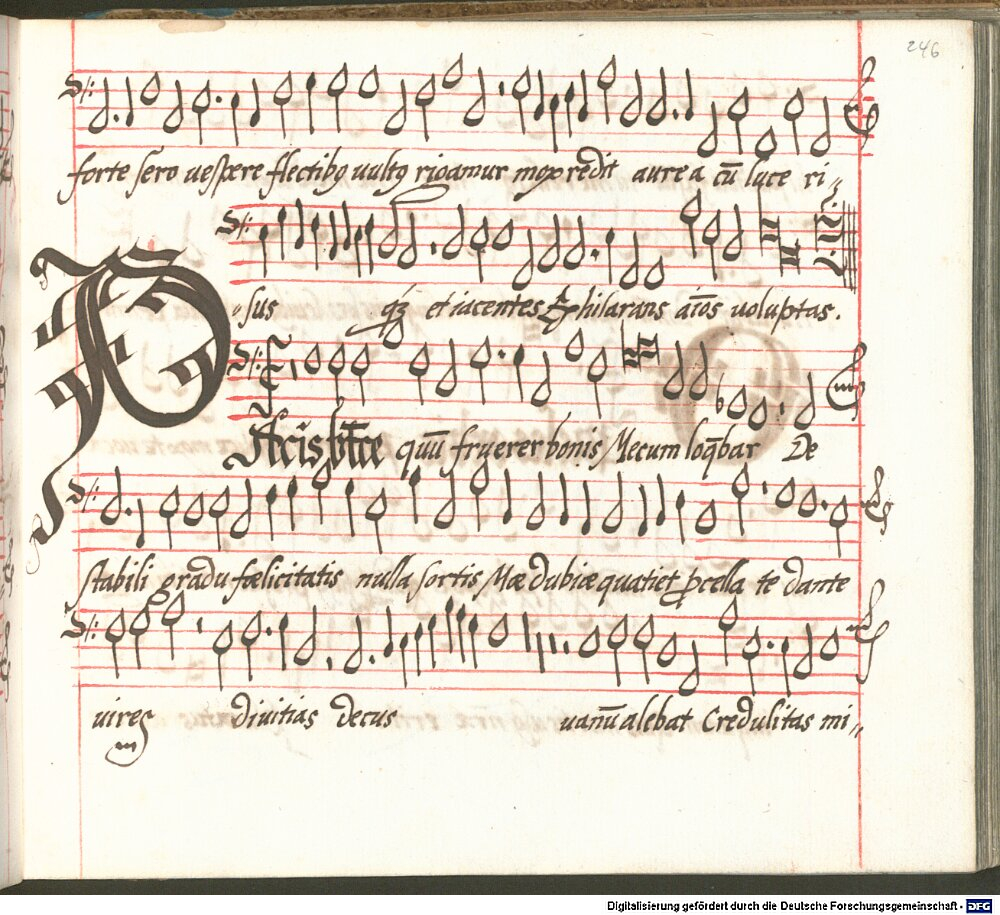 246
forte sero uespere flectibꝯ uultꝯ rigamur mox redit aurea cū luce ri„
„sus et iacentes Exhilarans aīos uoluptas.
quū fruerer bonis Mecum loq̄bar De
stabili gradu fœlicitatis nulla sortis Mæ dubiæ quatiet ꝓcella te dante
uires diuitias decus uanū alebat Credulitas mi„
Digitalisierung gefördert durch die Deutsche Forschungsgemeinschaft - DFG